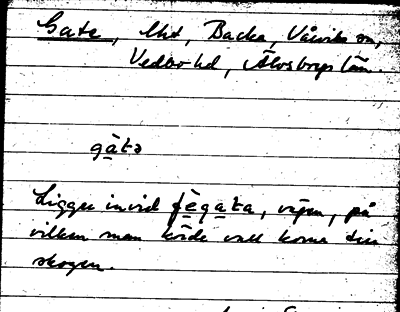 Gate, lht, Backa, Vårviks sn,
Vedbo hd, Älvsborgs län.
gàtə
Ligger invid fègata, vägen, på
vilken man körde ut korna till
skogen.